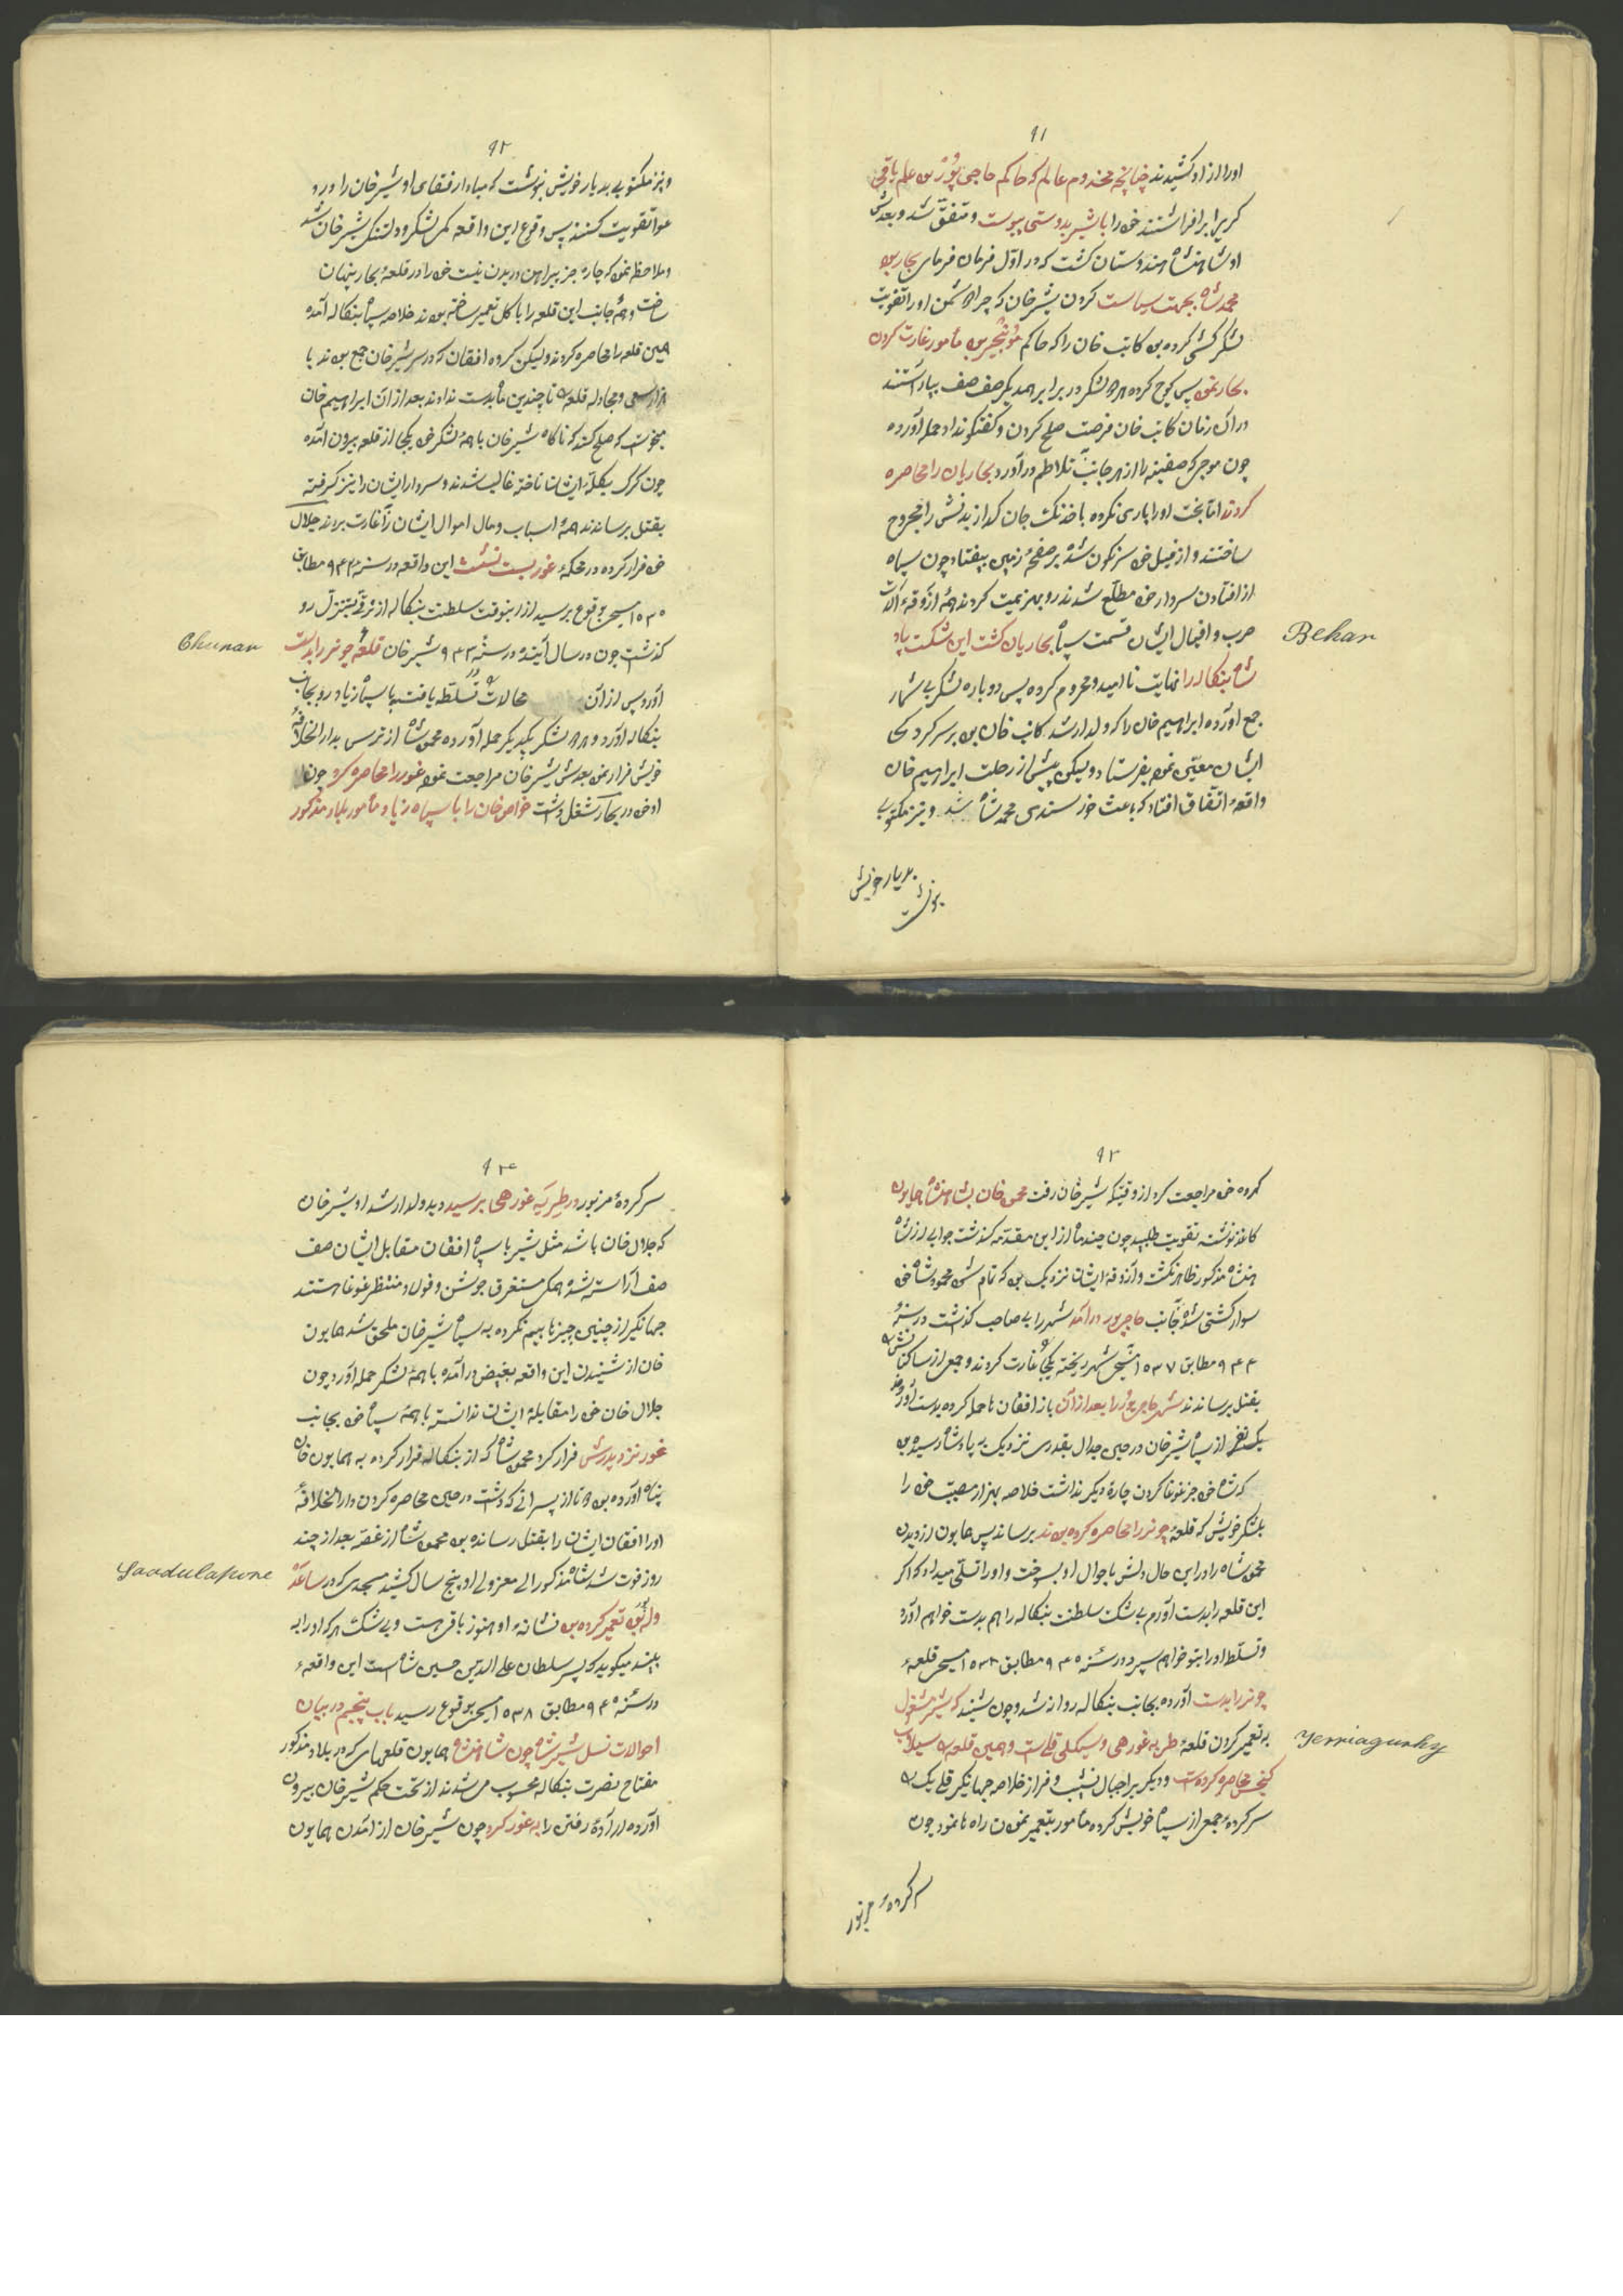 ۹۱
اورا ازاد کشیدند چنانچه مخدوم عالم که حاکم حاجی پور بن علم باقی
کریرا برافراشتند خود را با شیر بدوستی پیوست و متفق شد و بعدش
او شاهنشاه هندوستان کشت که در اول فرمان فرمای بحار بود
محمد شاه بجهت سیاست کردن بشیر خان که چرا دشمن اورا تقویت
لشکر کشی کرده بن کاتب خان را که حاکم بن مأمور غارت کردن
بحار نمود پس کوچ کرده هر دو لشکر در برابر همدیکر صف صف بیاراستند
در آن زمان کاتب خان فرصت صلح کردن و کفتکو نداد حمله آورده
چون موجی که صفینه را از هر جانب بتلاطم در آورد بحاریان را محاصره
کردند اما بخت اورا یاری نکرده با خدنک جان کداز بدنش را مجروح
ساختند و از فیل خود سرنکون شده بر صفحهٔ زمین بیفتاد چون سپاه
از افتادن سردار خود مطلع شدند رو بهزیمت کردند همهٔ آزوقه و آلات
حرب و افیال ایشان قسمت سپاه بحاریان کشت این شکست
Behar
شاه بنکاله را نهایت ناامید و محروم کرده پس دوباره لشکر بی شمار
جمع آورده ابراهیم خان را که ولد ارشد کاتب خان بن بر سرکردکی
ایشان معین نموده بفرستاد ولیکن پیش از رحلت ابراهیم خان
واقعهٔ اتفاق افتاد که باعث خورسندی محمد شاه شد و نیز مکتوبی
بدیار خویش
بنوشت
۹۲
و نیز مکتوبی بدیار خویش بنوشت که مبادا رفقای او شیر خان را در
تقویت کنند پس وقوع این واقعه کمی لشکر و دلتنکی شیر خان شد
و ملاحظه نمود که چاره جز پیراهن دریدن نیست خود را در قلعهٔ بحار پنهان
ساخت و همهٔ جانب این قلعه را با کل تعمیر ساخته بودند خلاصه سپاه بنکاله آمده
همین قلعه را محاصره کردند ولیکن کروه افغان که در سر شیر خان جمع بودند با
هزار سعی و مجادله قلعه را تا چندین ماه بدست ندادند بعد از آن ابراهیم خان
میخواست که صلح کند که ناکاه شیر خان با همهٔ لشکر خود یکجا از قلعه بیرون آمده
چون کرک بکلهٔ ایشان تاخته غالب شدند و سردار ایشان را نیز کرفته
بقتل برساندند همهٔ اسباب و مال اموال ایشان را غارت بردند جلال
خود فرار کرده در محکمهٔ غور بست نشست این واقعه در سنه ۹۴۲ مطابق
۱۵۳۵ مسیحی بوقوع برسید از اینوقت سلطنت بنکاله از ترقی بتنزل رو
کذشت چون در سال آینده در سنه ۹۴۳ شیر خان قلعهٔ چونر را بدست
Chunar
آورد پس از آن محالات تسلط یافته با سپاه زیاد رو بجانب
بنکاله آورد و هر دو لشکر بیکدیکر حمله آورده محمود شاه از ترس بدار الخلافهٔ
خویش فرار نمود بعدش شیر خان مراجعت نموده غور را محاصره کرد چون
او خود در بحار شغل داشت خواص خان را با سپاه زیاد مأمور بلاد مذکور
۹۳
کرده خود مراجعت کرد از وقتیکه شیر خان رفت محمود خان بشاهنشاه همایون
کاغذ نوشته تقویت طلبید چون چند ماه از این مقدمه کذشت جوابی از شاه
هنشاه مذکور ظاهر نکشت و آزوقهٔ ایشان نزدیک بن که تمام شود محمود شاه خود
سوار کشتی شده بجانب حاجی پور در آمد شهر را بی صاحب کذاشت در سنهٔ
۹۴۴ مطابق ۱۵۳۷ مسیحی شهر ریخته یکجا غارت کردند و جمعی از ساکنانش
بقتل برساندند شهر حاجی پور را بعد از آن باز افغان ها حمله کرده بدست آورد
یک نفر از سپاه شیر خان در حین جدال بقدری نزدیک به پادشاه رسیده بن
که شاه خود جز غوغا کردن چارهٔ دیکر نداشت خلاصه بهزار مصیبت خود را
بلشکر خویش که قلعهٔ چونر را محاصره کرده بودند برساند پس همایون از دیدن
محمود شاه را در این حال دلش باحوال او بسوخت و اورا تسلی میداد که اکر
این قلعه را بدست آورم بی شک سلطنت بنکاله را هم بدست خواهم آورد
و تسلط اورا بتو خواهم سپرد در سنه ۹۴۵ مطابق ۱۵۳۸ مسیحی قلعهٔ
چونر را بدست آورده بجانب بنکاله روانه شد و چون شنید که شیر مشغول
به تعمیر کردن قلعهٔ طریه غورهی و سیکلی قلی است و همین قلعه را سیلاب
Yerriagurhy
کنجی محاصره کرده است و دیکر بر اجبال نشیب و فراز خلاصه جهانکیر قلی بک را
سرکردهٔ جمعی از سپاه خویش کرده مأمور بتعمیر نمودن راه ها نمود چون
سرکردهٔ مزبور
۹۴
سرکردهٔ مزبور در طریه غورهی برسید دید ولد ارشد او شیر خان
که جلال خان باشد مثل شیر با سپاه افغان مقابل ایشان صف
صف آراسته شده همکی مستغرق جوشن و فولاد و منتظر غوغا هستند
جهانکیر از چنین چیزها بیم نکرده به سپاه شیر خان ملحق شد همایون
خان از شنیدن این واقعه بغیض در آمده با همهٔ لشکر حمله آورد چون
جلال خان خود را مقابلهٔ ایشان ندانسته با همهٔ سپاه خود بجانب
غور نزد پدرش فرار کرد محمود شاه که از بنکاله فرار کرده به همایون خان
پناه آورده بن دو تا از پسرانی که داشت در حین محاصره کردن دار الخلافهٔ
اورا افغان ایشان را بقتل رسانده بن محمود شاه از غصه بعد از چند
روز فوت شد شاه مذکور الی معزولی او پنج سال کشید مسجدی که در ساعد
Saadulapore
وله پور تعمیر کرده بن نشانهٔ او هنوز باقی هست و بی شک هر که اورا به
بیند میکوید که پسر سلطان علی الدین حسین شاه است این واقعهٔ
در سنه ۹۴۵ مطابق ۱۵۳۸ مسیحی بوقوع رسید باب پنجم در بیان
احوالات نسل شیر شاه چون شاهنشاه همایون قلعهای که در بلاد مذکور
مفتاح نصرت بنکاله محسوب می شدند از تحت حکم شیر خان بیرون
آورده ارادهٔ رفتن را به غور کرد چون شیر خان از آمدن همایون